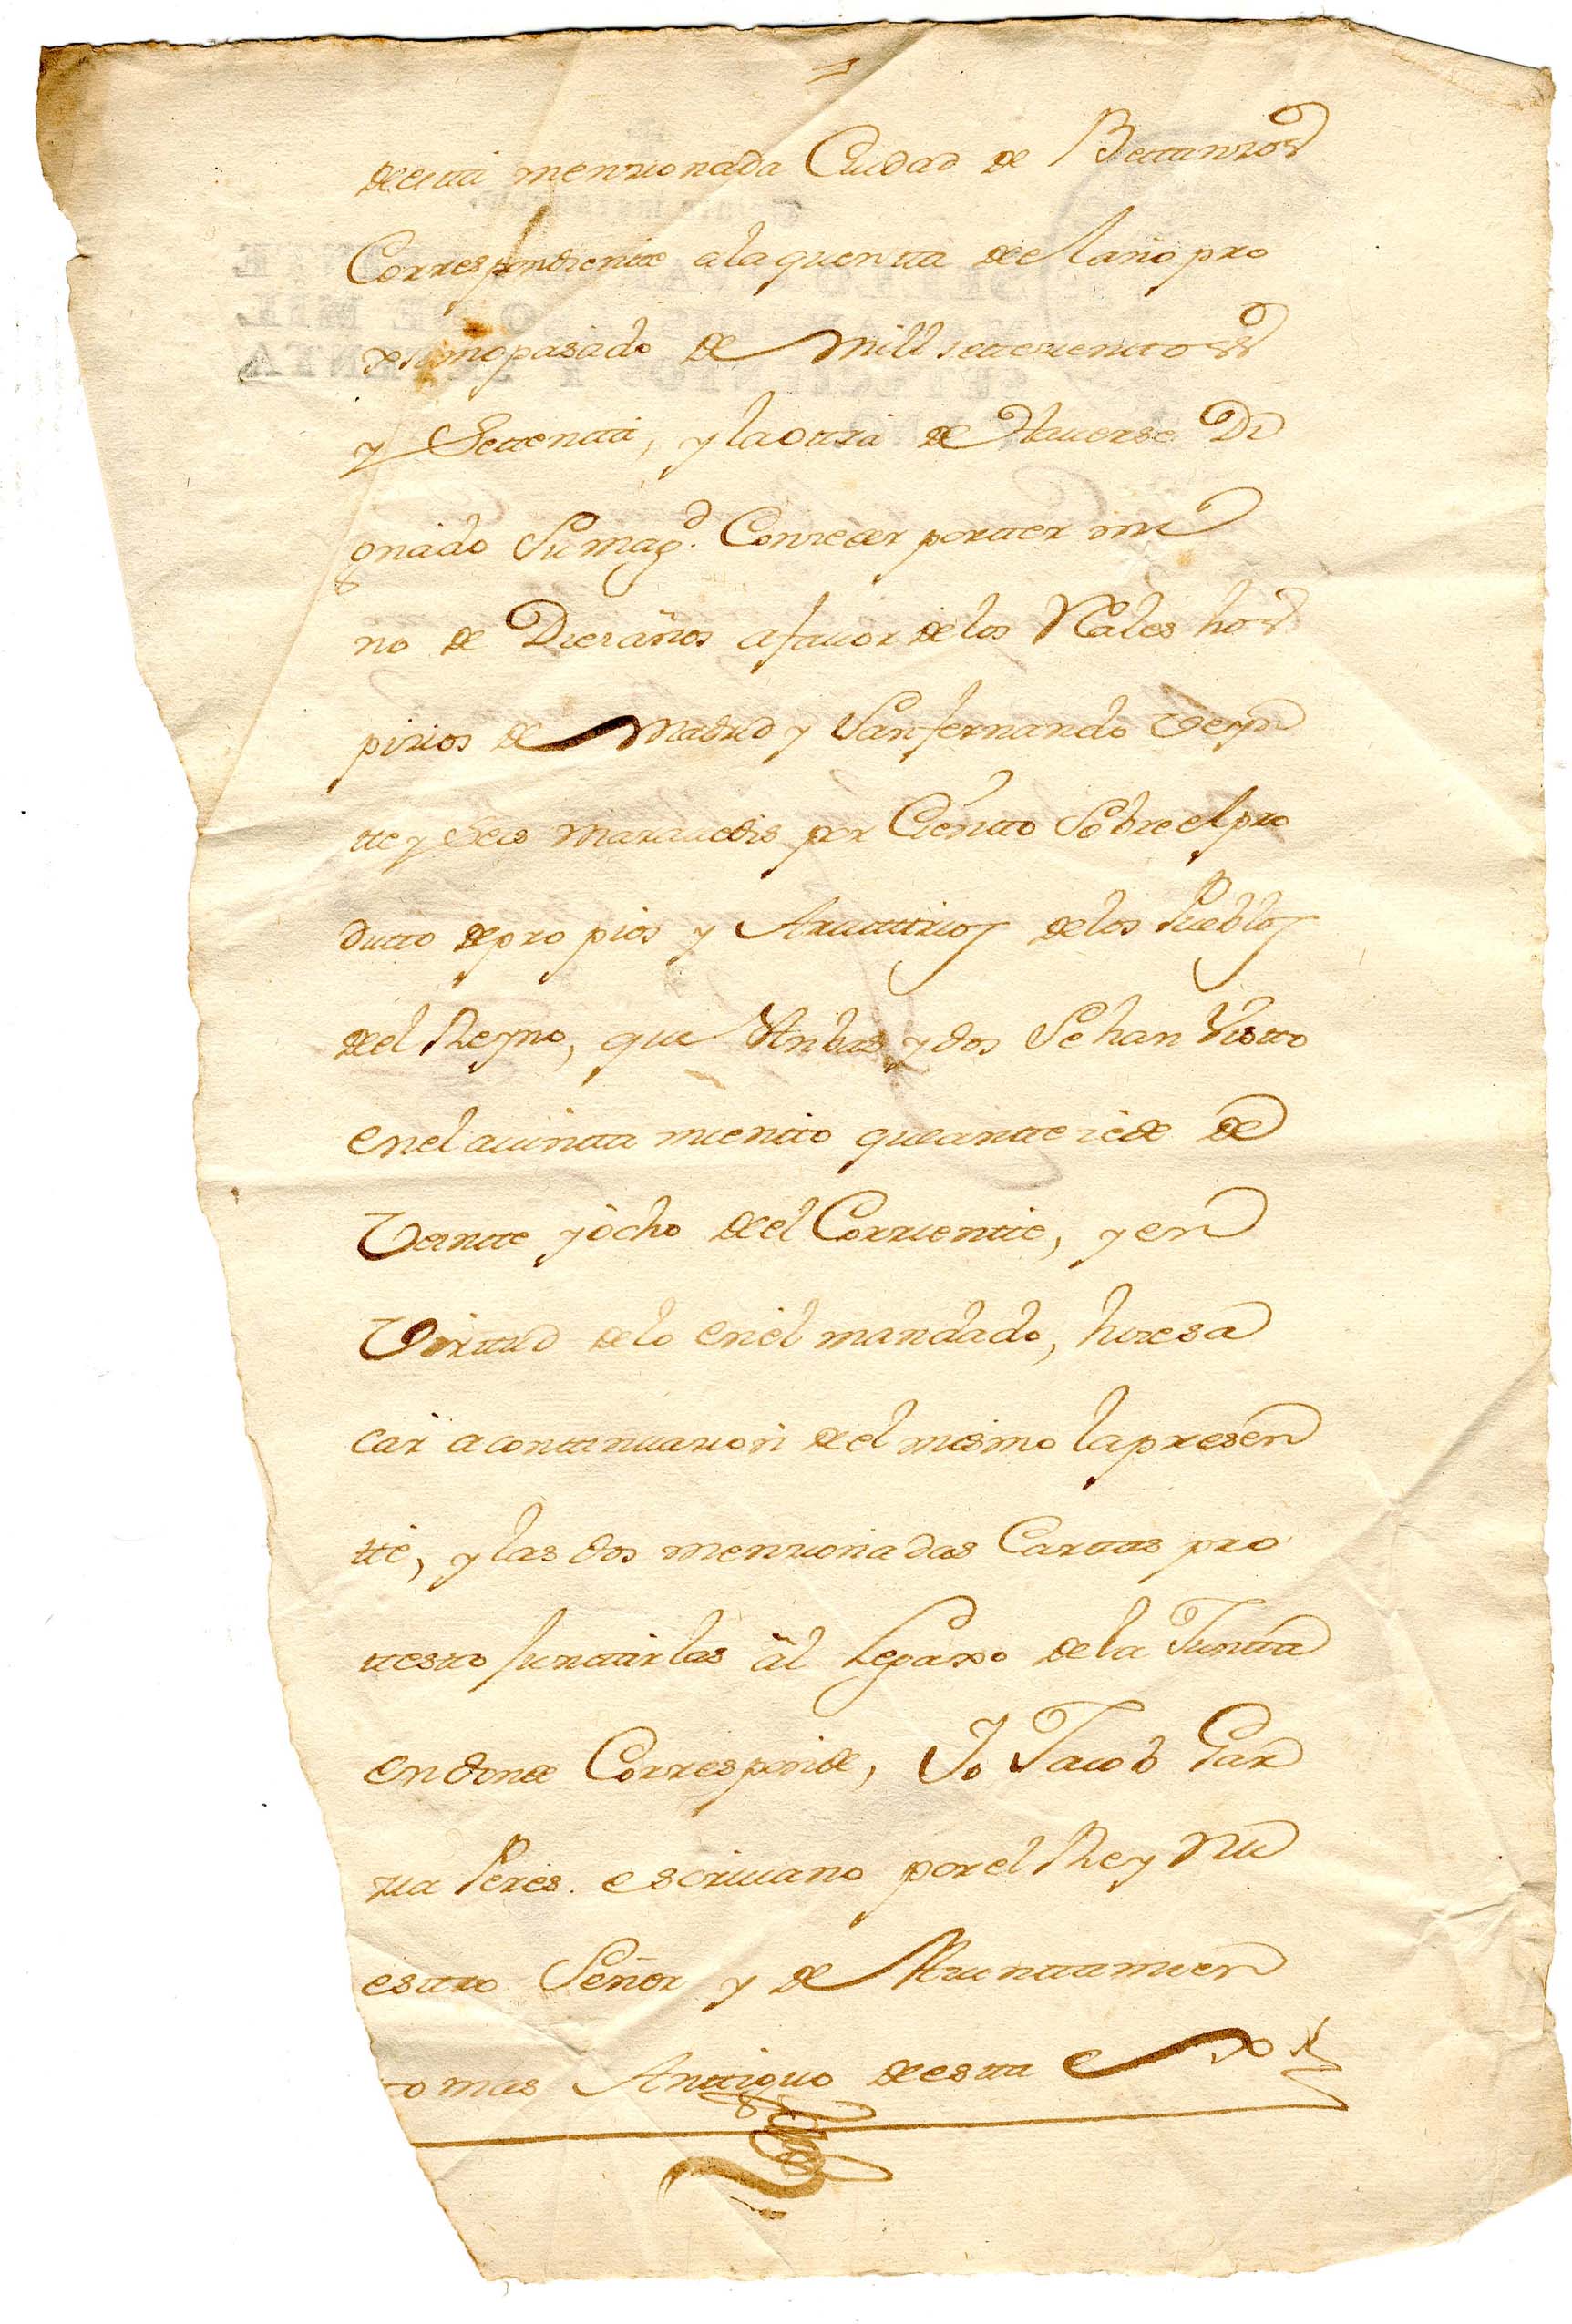 de esta menzionada Ciudad de Bettanzos
Correspondiente a la quentta de el año pro
ximo pasado de Mill settezienttos
y Settentta, y la ottra de Hauerse Di
gnado Su Mag.d Conzeder por tter mi
no de Diez años a fauor de los Rales hos
pizios de Madrid y San fernando Veyn
tte y Seis marauedis por Cientto Sobre el pro
ductto de propios y Aruittrios de los Pueblos
de el Reyno, que Anbas y dos Se han Visto
en el aiuntta mientto que antte zede de
Veintte y ocho de el Corrientte, y en
Virttud de lo en el mandado, hize sa
car a conttinuazion de el mismo la presen
tte, y las dos menzionadas Carttas pro
ttesto Junttarlas âl Legaxo de la Juntta
en donde Corresponde, Yo Jacob Gar
zia Peres escriuano por el Rey Nu
esttro Señor y de Aiunttamien
to mas Anttiguo de estta
SELLO
MIL
SETECIENTOS Y SETENTA